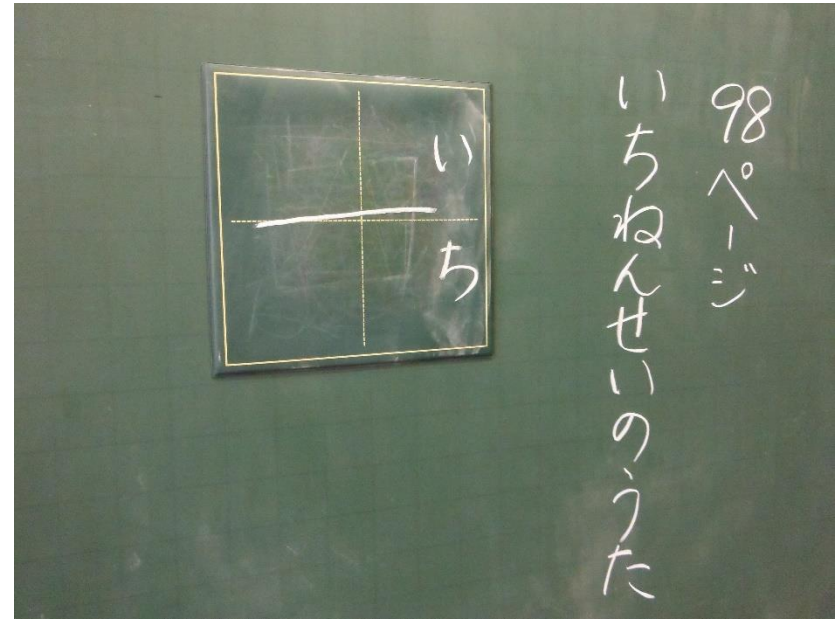 98ページ
いちねんせいのうた
一
いち